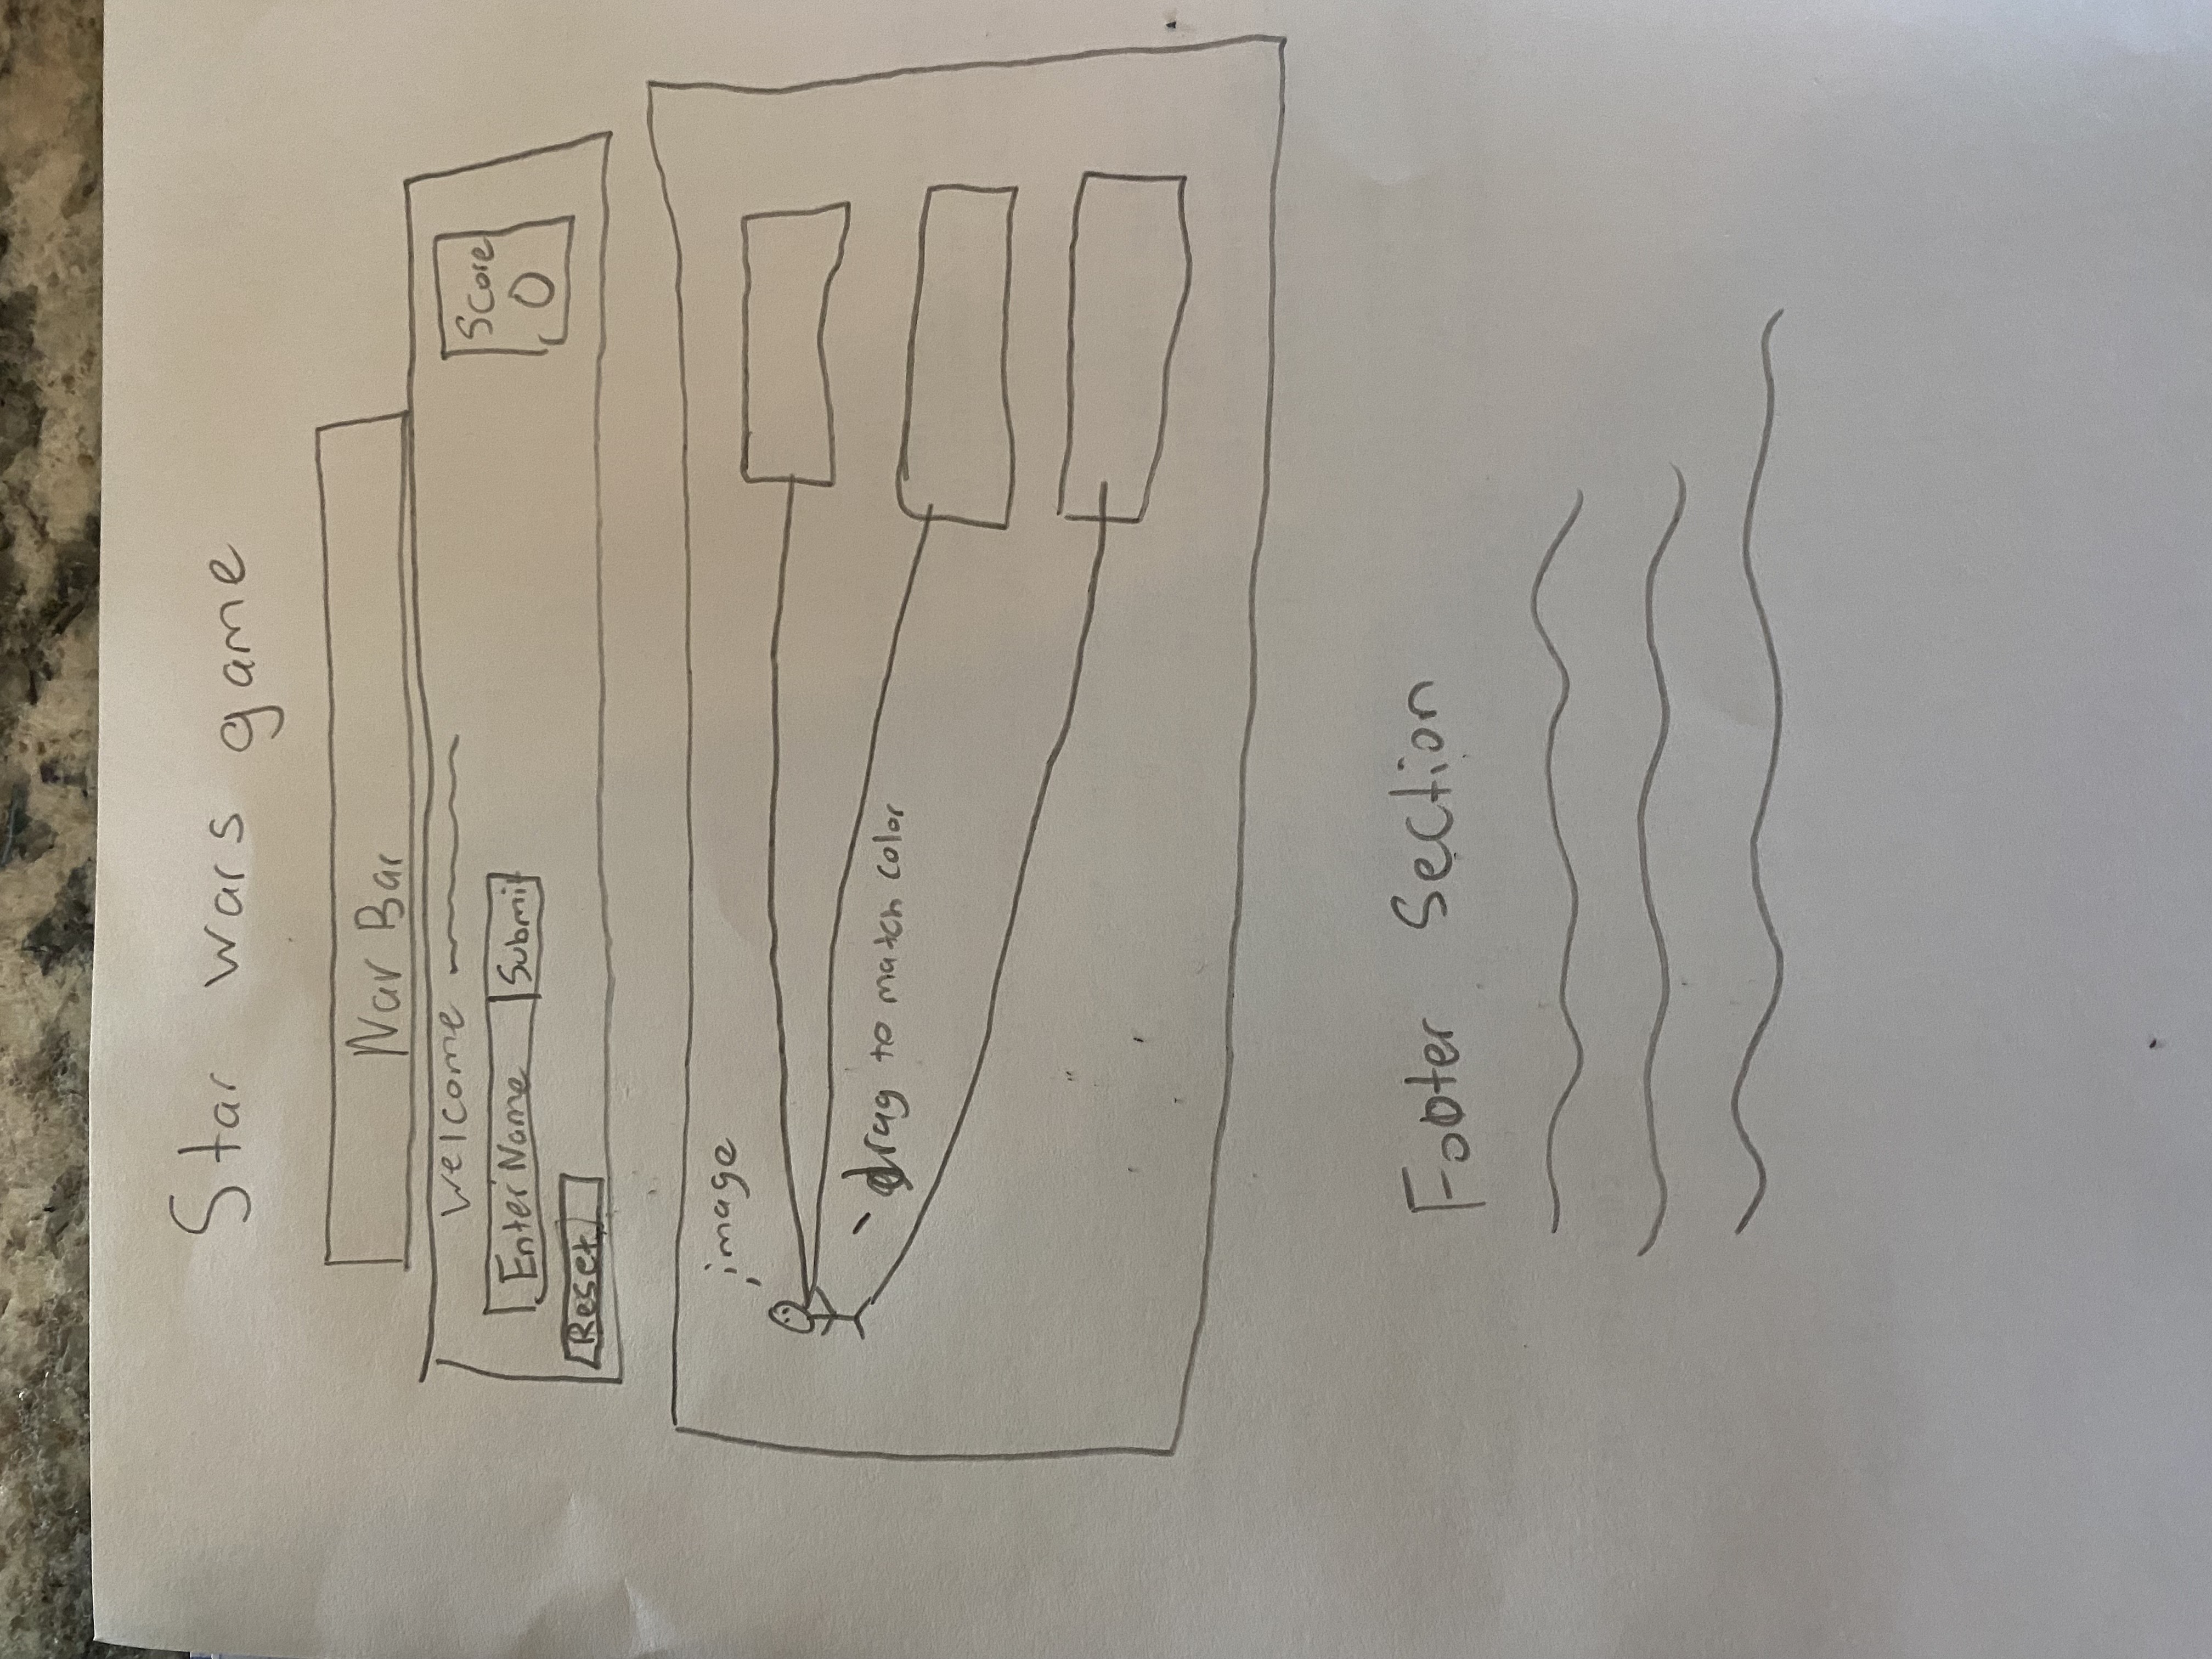 Star wars game
Nav Bar
Welcome
Score
0
Enter Name Submit
Reset
image
drag to match color
Footer Section